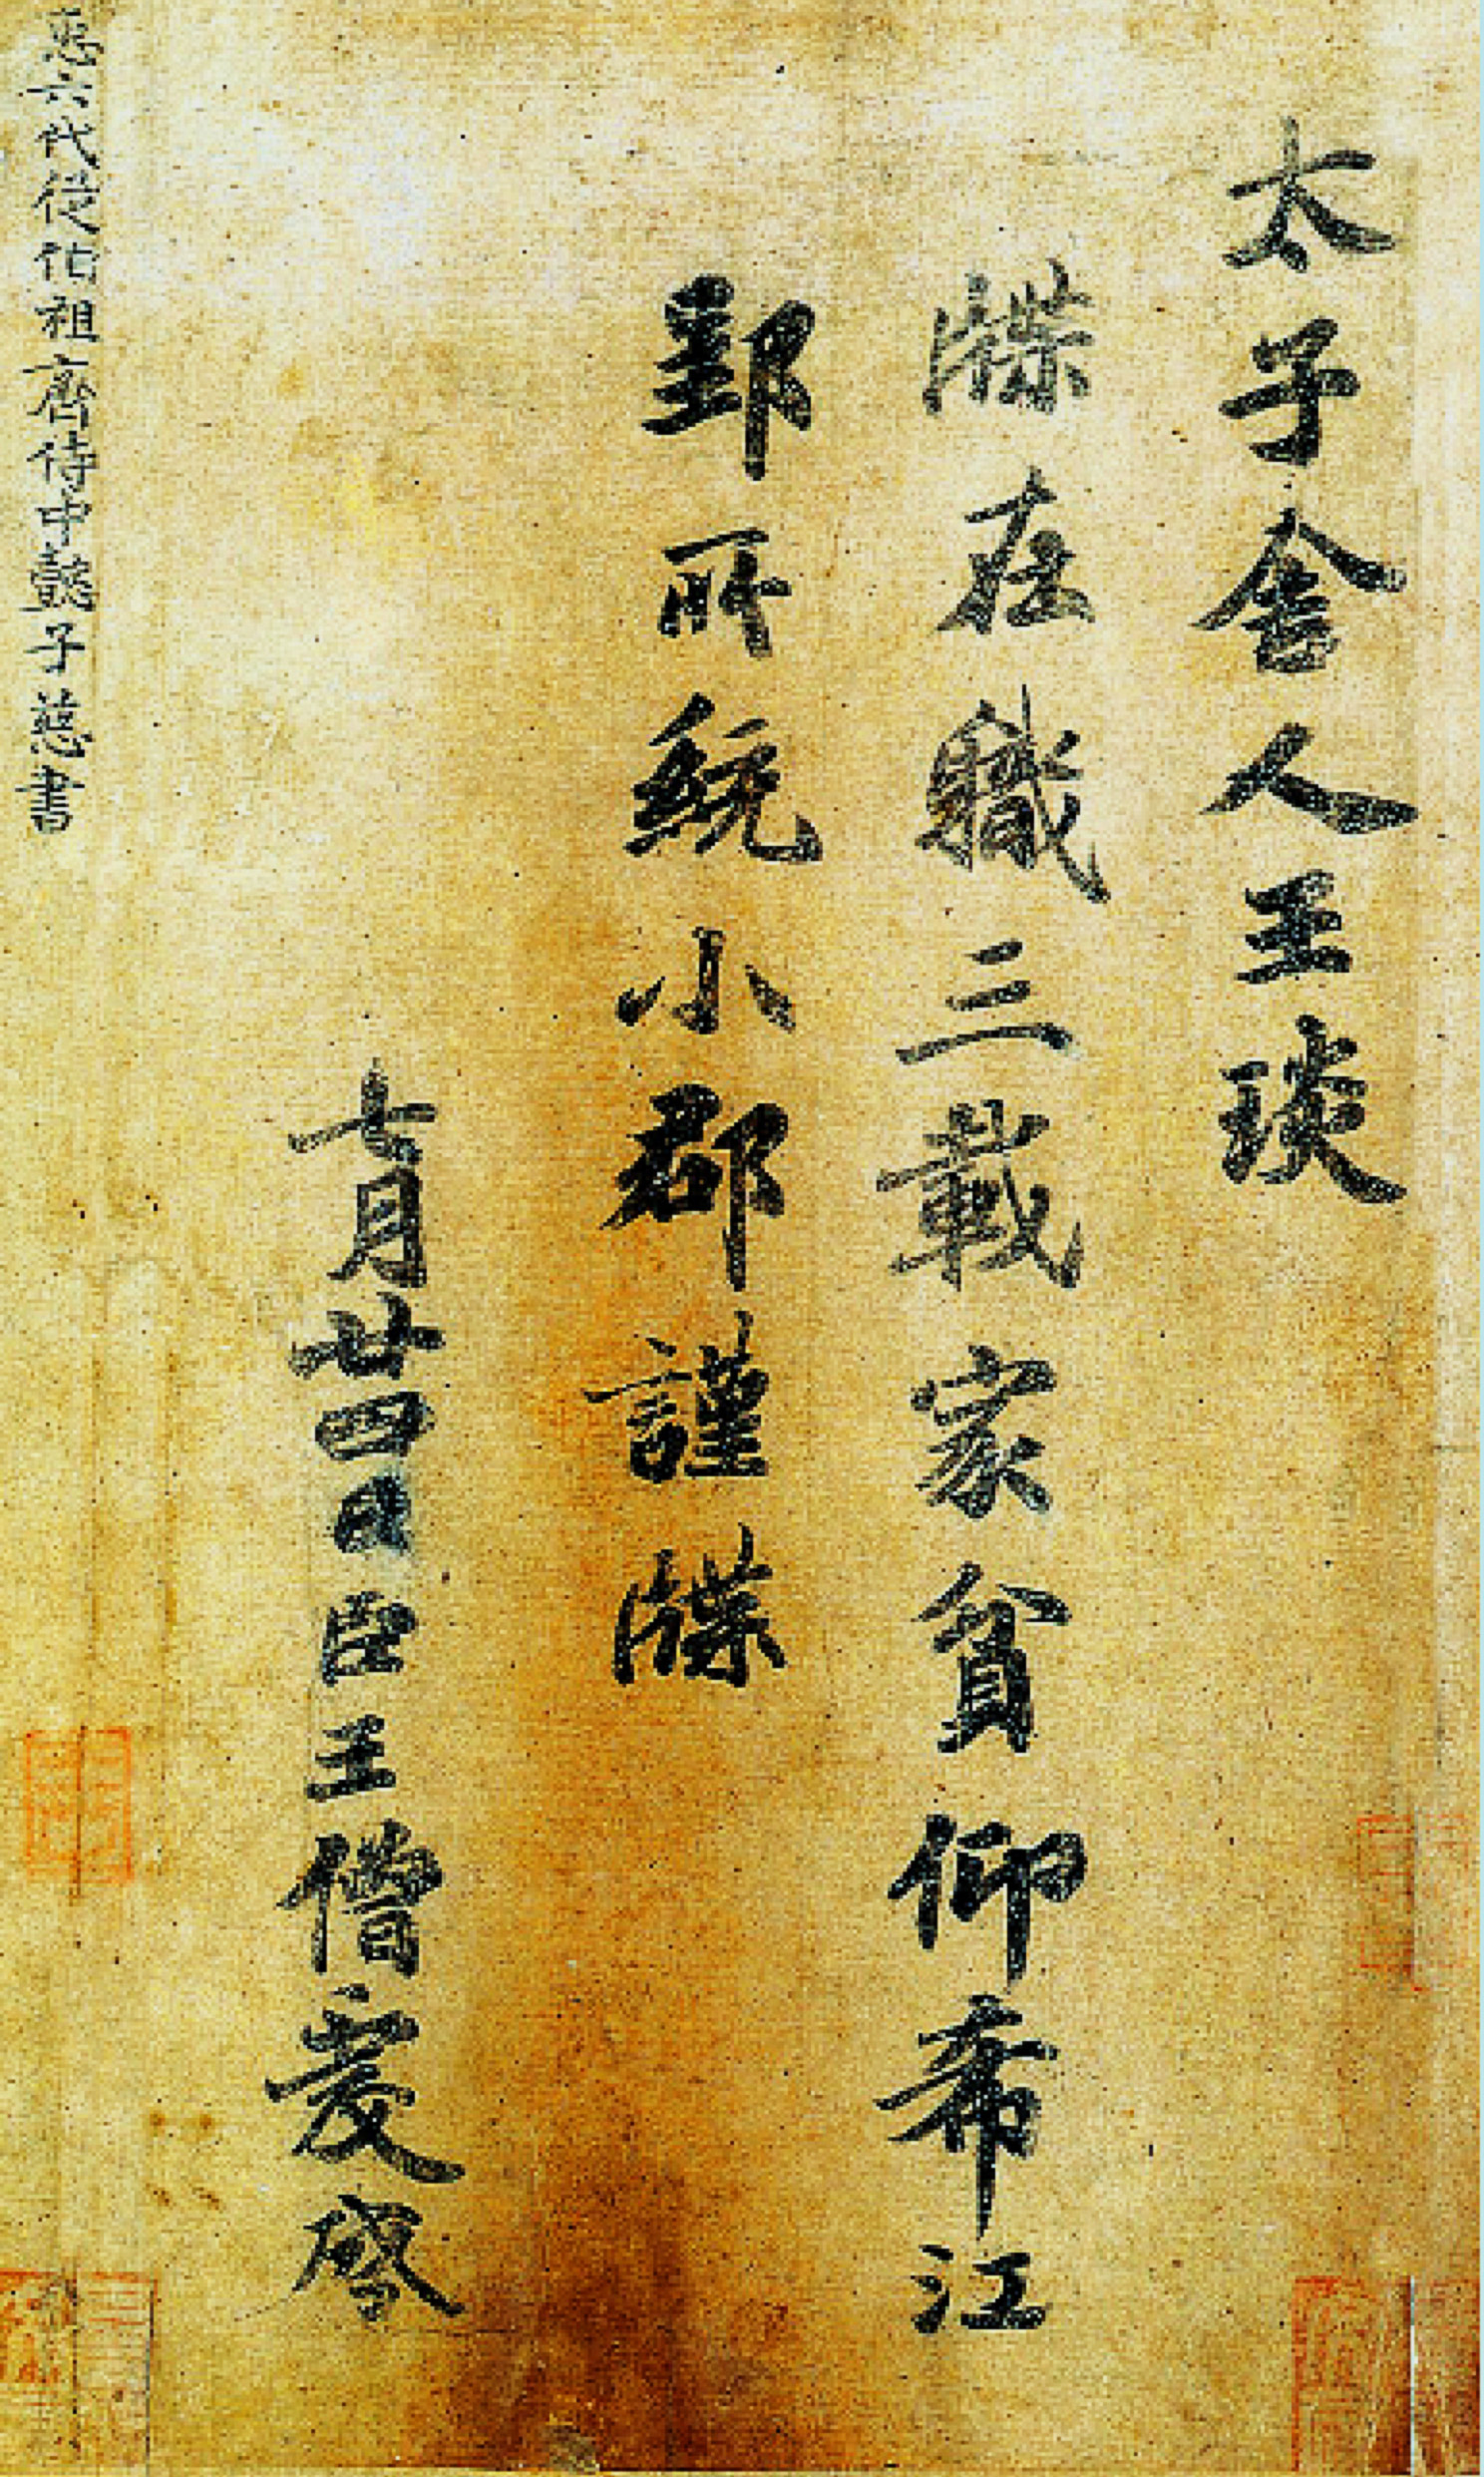 太子舍人王琰
牒在職三載家貧仰希江
郢所統小郡謹牒
七月廿四日臣王僧虔啓
𢘑六代從伯祖齊侍中懿子慈書